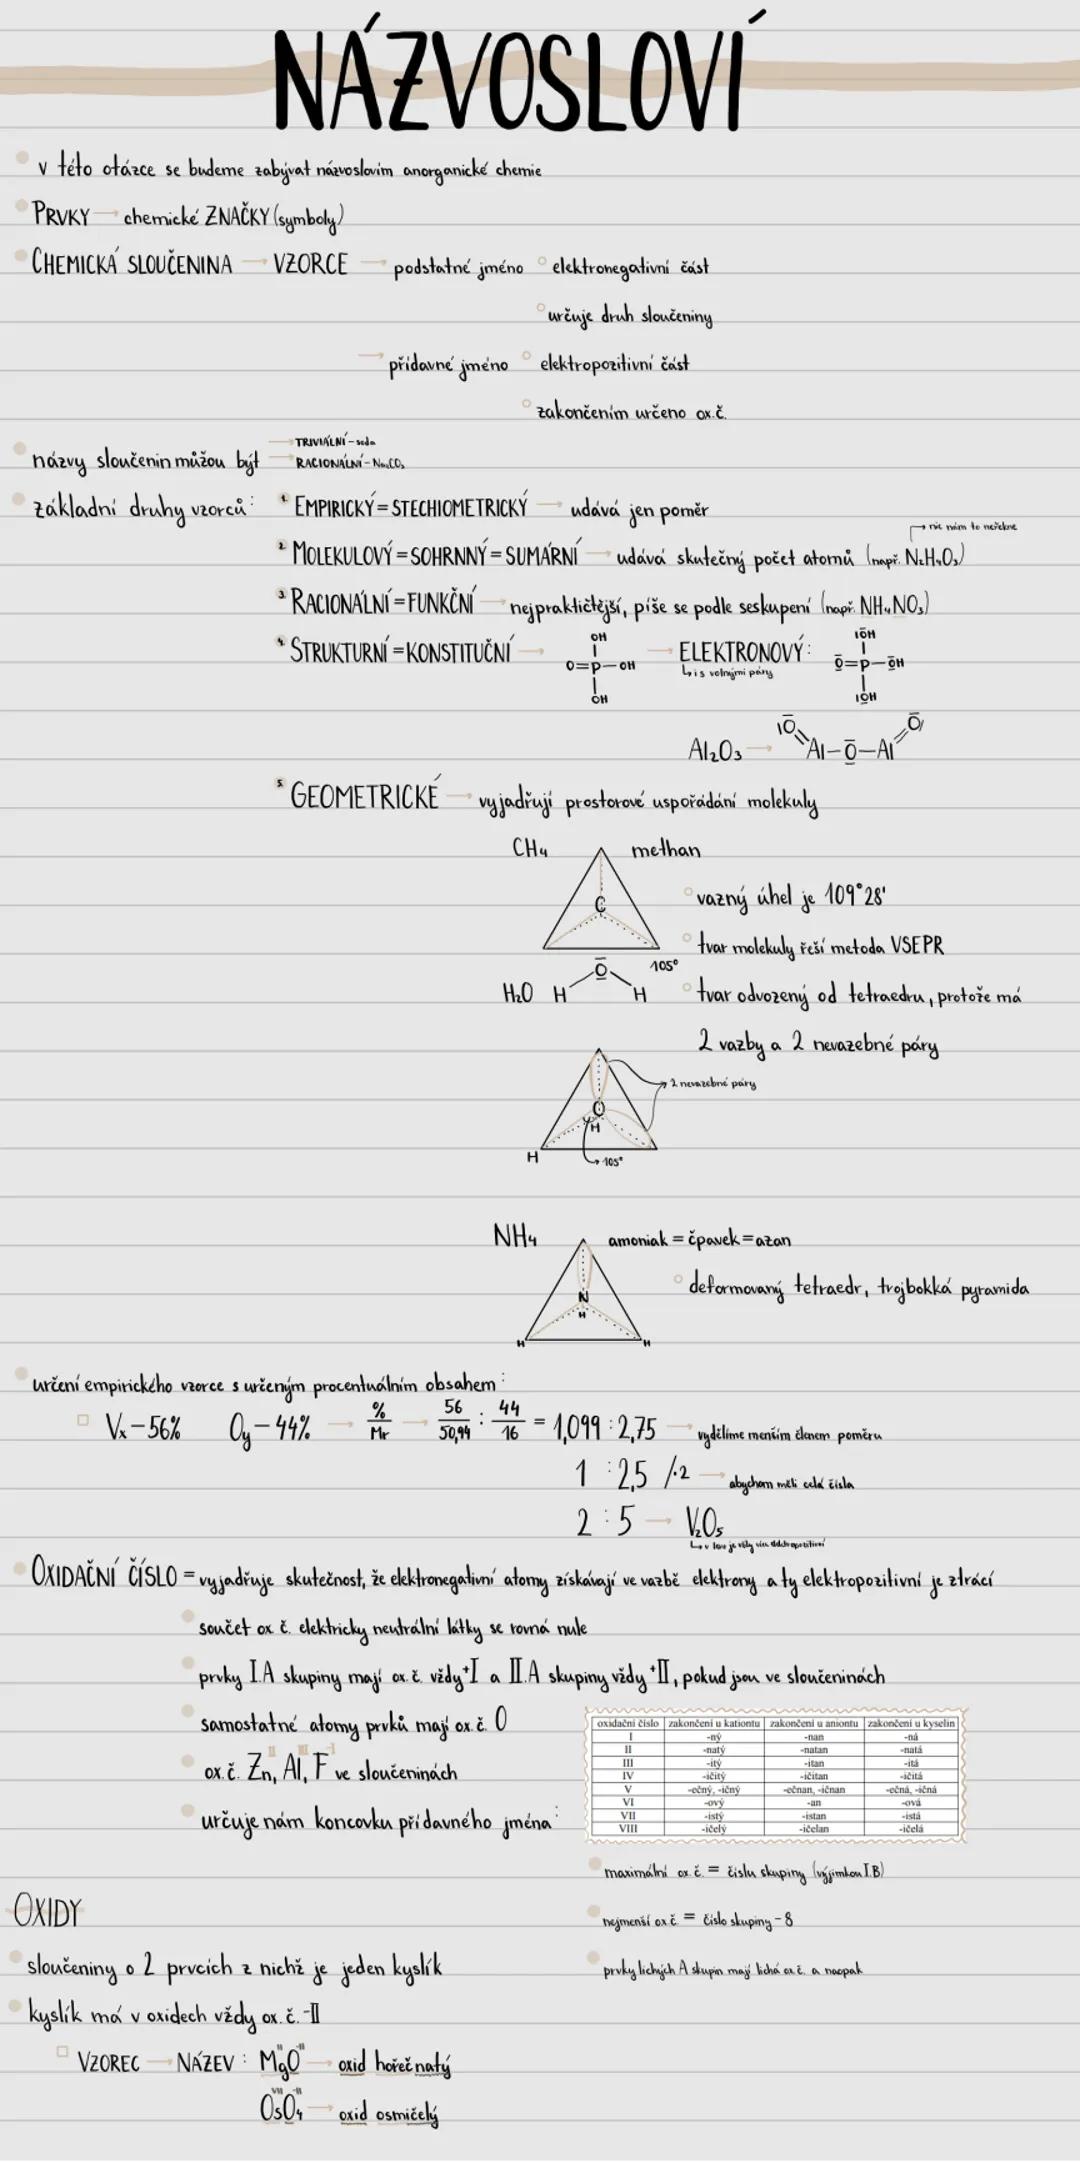 NÁZVOSLOVÍ
v této otázce se budeme zabývat názvoslovím anorganické chemie
PRVKY → chemické ZNAČKY (symboly)
CHEMICKÁ SLOUČENINA → VZORCE → podstatné jméno ° elektronegativní část
° určuje druh sloučeniny
→ přídavné jméno ° elektropozitivní část
° zakončením určeno ox.č.
→ TRIVIÁLNÍ - soda
názvy sloučenin můžou být → RACIONÁLNÍ - Na₂CO₃
základní druhy vzorců: 1. EMPIRICKÝ = STECHIOMETRICKÝ → udává jen poměr
→ nic nám to neřekne
2. MOLEKULOVÝ = SOHRNNÝ = SUMÁRNÍ → udává skutečný počet atomů (např. N₂H₄O₃)
3. RACIONÁLNÍ = FUNKČNÍ → nejpraktičtější, píše se podle seskupení (např. NH₄NO₃)
4. STRUKTURNÍ = KONSTITUČNÍ → OH O=P-OH OH → ELEKTRONOVÝ: IOH O=P-OH IOH
↳ i s volnými páry
Al₂O₃ → IO Al-O-Al O
5. GEOMETRICKÉ → vyjadřují prostorové uspořádání molekuly
CH₄ methan
C
° vazný úhel je 109°28'
° tvar molekuly řeší metoda VSEPR
105°
H₂O H O H ° tvar odvozený od tetraedru, protože má
2 vazby a 2 nevazebné páry
→ 2 nevazebné páry
O
H
H → 105°
NH₄ amoniak = čpavek = azan
° deformovaný tetraedr, trojbokká pyramida
N
H
H H
určení empirického vzorce s určeným procentuálním obsahem:
Vₓ - 56% Oy - 44% → %/Mr → 56/50,94 : 44/16 = 1,099 : 2,75 → vydělíme menším členem poměru
1 : 2,5 /·2 → abychom měli celá čísla
2 : 5 → V₂O₅
↳ v levo je vždy více elektropozitivní
OXIDAČNÍ ČÍSLO = vyjadřuje skutečnost, že elektronegativní atomy získávají ve vazbě elektrony a ty elektropozitivní je ztrácí
součet ox č. elektricky neutrální látky se rovná nule
prvky I.A skupiny mají ox. č. vždy +I a II.A skupiny vždy +II, pokud jsou ve sloučeninách
samostatné atomy prvků mají ox. č. 0
II III -I
ox. č. Zn, Al, F ve sloučeninách
určuje nám koncovku přídavného jména:
oxidační číslo zakončení u kationtu zakončení u aniontu zakončení u kyselin
I -ný -nan -ná
II -natý -natan -natá
III -itý -itan -itá
IV -ičitý -ičitan -ičitá
V -ečný, -ičný -ečnan, -ičnan -ečná, -ičná
VI -ový -an -ová
VII -istý -istan -istá
VIII -ičelý -ičelan -ičelá
maximální ox. č. = číslu skupiny (výjimkou I.B)
nejmenší ox.č. = číslo skupiny - 8
prvky lichých A skupin mají lichá ox.č. a naopak
OXIDY
sloučeniny o 2 prvcích z nichž je jeden kyslík
kyslík má v oxidech vždy ox. č. -II
II -II
VZOREC → NÁZEV: MgO → oxid hořečnatý
VIII -II
OsO₄ → oxid osmičelý